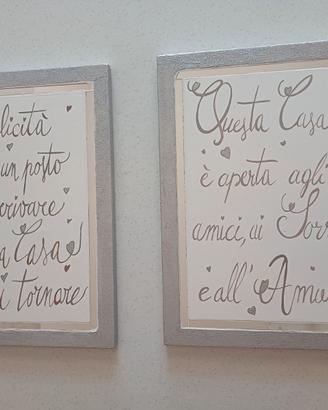 licità
un posto
rrivare
a Casa
i tornare
Questa Casa
è aperta agli
amici, ai Sorr
e all' Amo